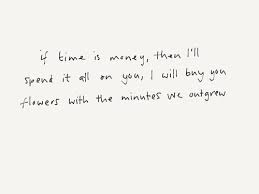 if time is money, then I'll
spend it all on you, I will buy you
flowers with the minutes we outgrew